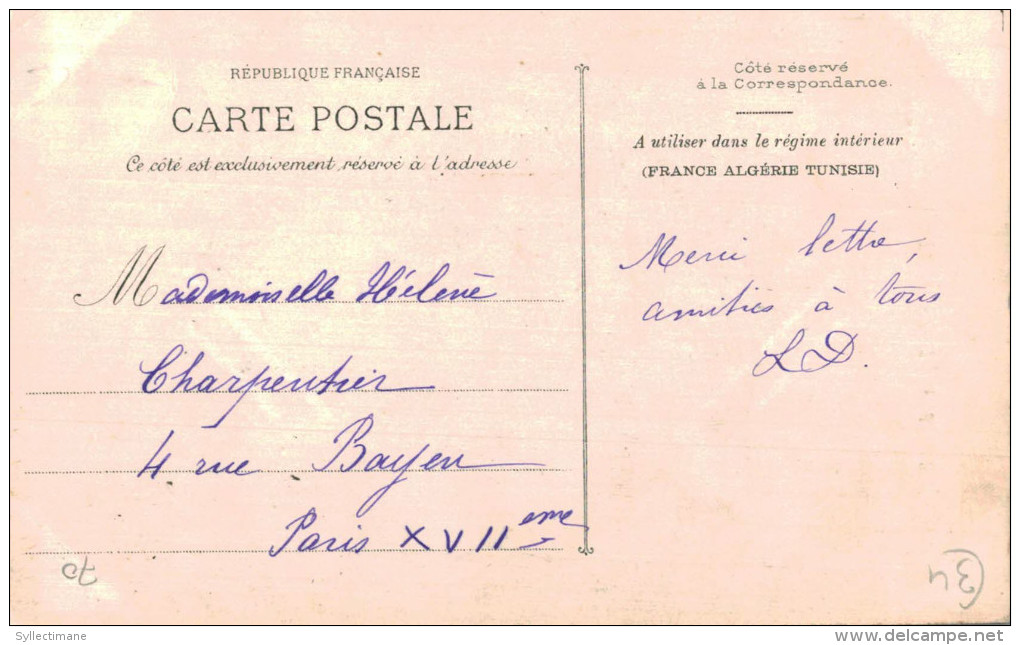 RÉPUBLIQUE FRANÇAISE
CARTE POSTALE
Ce côté est exclusivement réservé à l'adresse
Mademoiselle Hélène
Charpentier
4 rue Bayen
Paris XVII eme
Côté réservé
à la Correspondance.
A utiliser dans le régime intérieur
(FRANCE ALGÉRIE TUNISIE)
Merci lettre,
amitiés à tous
LD.
70
34
Syllectimane
www.delcampe.net